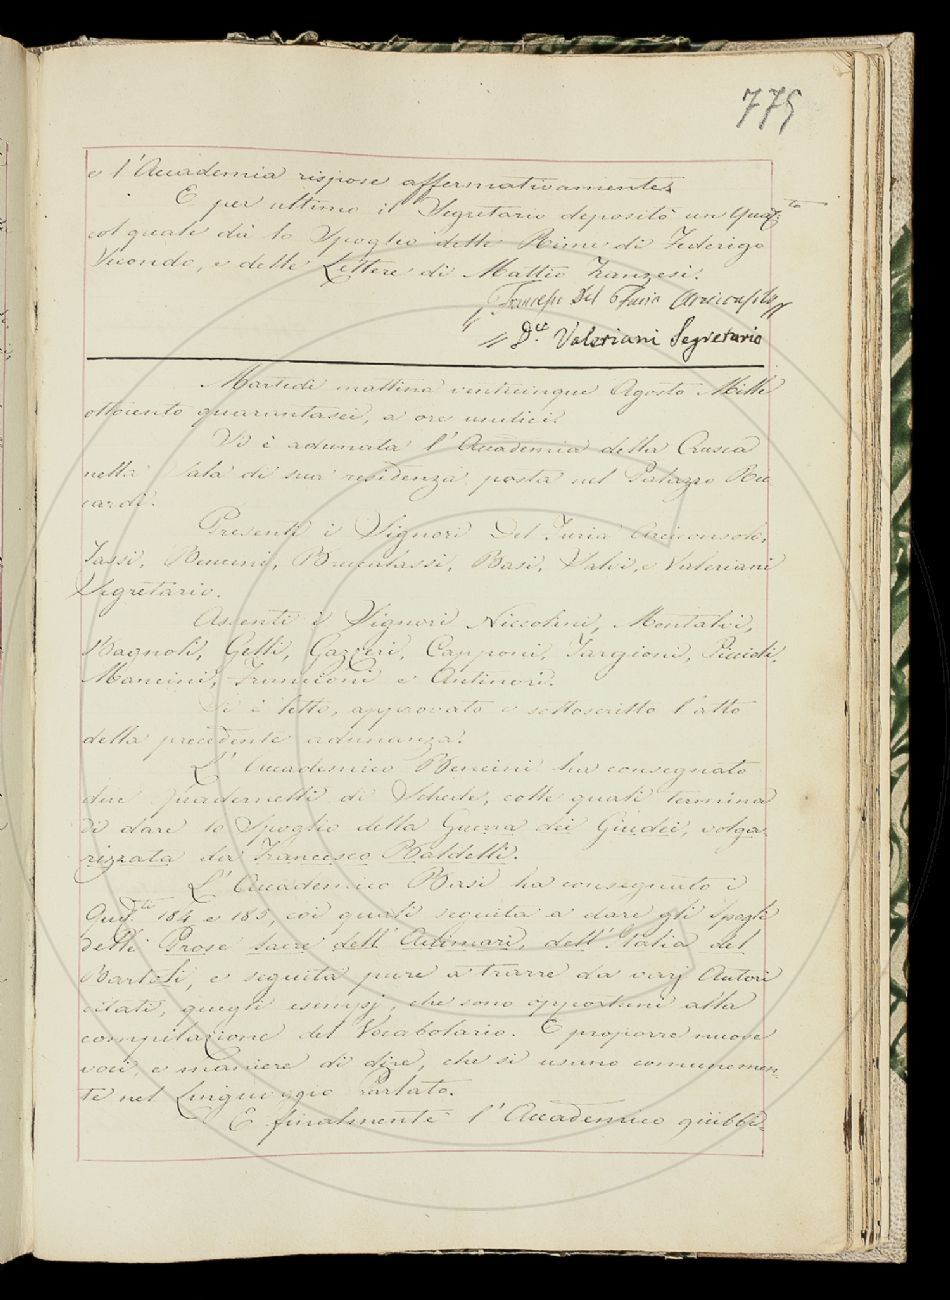 775
e l'Accademia rispose affermativamente.
E per ultimo il Segretario depositò un Quad.to
col quale dà lo Spoglio delle Rime di Federigo
Secondo, e delle Lettere di Matteo Franzesi.
Francesco Del Furia Arciconsolo
D.re Valeriani Segretario
Martedì mattina venticinque Agosto Mille
ottocento quarantasei, a ore undici.
Si è adunata l'Accademia della Crusca
nella Sala di sua residenza, posta nel Palazzo Ric
cardi.
Presenti i Signori Del Furia Arciconsolo,
Tassi, Bencini, Brucalassi, Basi, Salvi, e Valeriani
Segretario.
Assenti i Signori Niccolini, Montalvi,
Bagnoli, Gelli, Gazzeri, Capponi, Targioni, Piccioli,
Mancini, Franscioni e Antinori.
Si è letto, approvato e sottoscritto l'atto
della precedente adunanza.
L'Accademico Bencini ha consegnato
due Quadernetti di Schede, colle quali termina
di dare lo Spoglio della Guerra dei Giudei, volga
rizzata da Francesco Baldelli.
L'Accademico Basi ha consegnato i
Qud.tti 184 e 185, coi quali seguita a dare gli Spogli
delle Prose Sacre dell'Adimari, dell'Italia del
Bartoli, e seguita pure a trarre da varj Autori
citati, quegli esempj, che sono opportuni alla
compilazione del Vocabolario. E propone nuove
voci, e maniere di dire, che si usano comunemen-
te nel Linguaggio Parlato.
E finalmente l'Accademico giubbi-